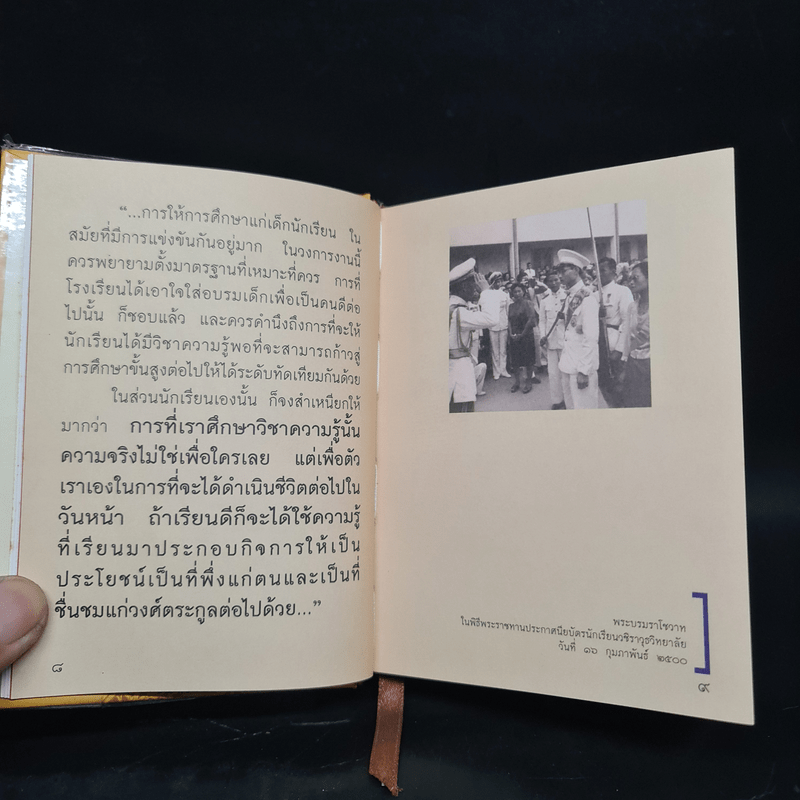 “...การให้การศึกษาแก่เด็กนักเรียน ใน
สมัยที่มีการแข่งขันกันอยู่มาก ในวงการงานนี้
ควรพยายามตั้งมาตรฐานที่เหมาะที่ควร การที่
โรงเรียนได้เอาใจใส่อบรมเด็กเพื่อเป็นคนดีต่อ
ไปนั้น ก็ชอบแล้ว และควรคำนึงถึงการที่จะให้
นักเรียนได้มีวิชาความรู้พอที่จะสามารถก้าวสู่
การศึกษาขั้นสูงต่อไปให้ได้ระดับทัดเทียมกันด้วย
ในส่วนนักเรียนเองนั้น ก็จงสำเหนียกให้
มากว่า การที่เราศึกษาวิชาความรู้นั้น
ความจริงไม่ใช่เพื่อใครเลย แต่เพื่อตัว
เราเองในการที่จะได้ดำเนินชีวิตต่อไปใน
วันหน้า ถ้าเรียนดีก็จะได้ใช้ความรู้
ที่เรียนมาประกอบกิจการให้เป็น
ประโยชน์เป็นที่พึ่งแก่ตนและเป็นที่
ชื่นชมแก่วงศ์ตระกูลต่อไปด้วย...”
๘
พระบรมราโชวาท
ในพิธีพระราชทานประกาศนียบัตรนักเรียนวชิราวุธวิทยาลัย
วันที่ ๑๖ กุมภาพันธ์ ๒๕๐๐
๙